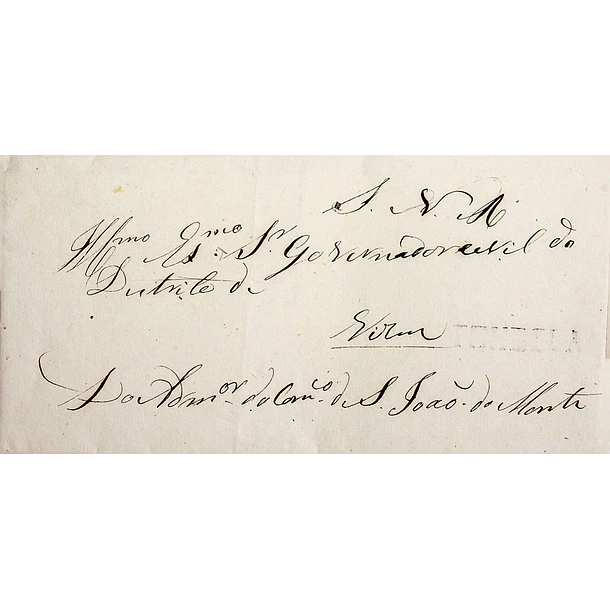 S. N. R.
Illmo Exmo Sr Governador Civil do
Districto de
Vizeu
Do Admor. do Conco. de S. João do Monte